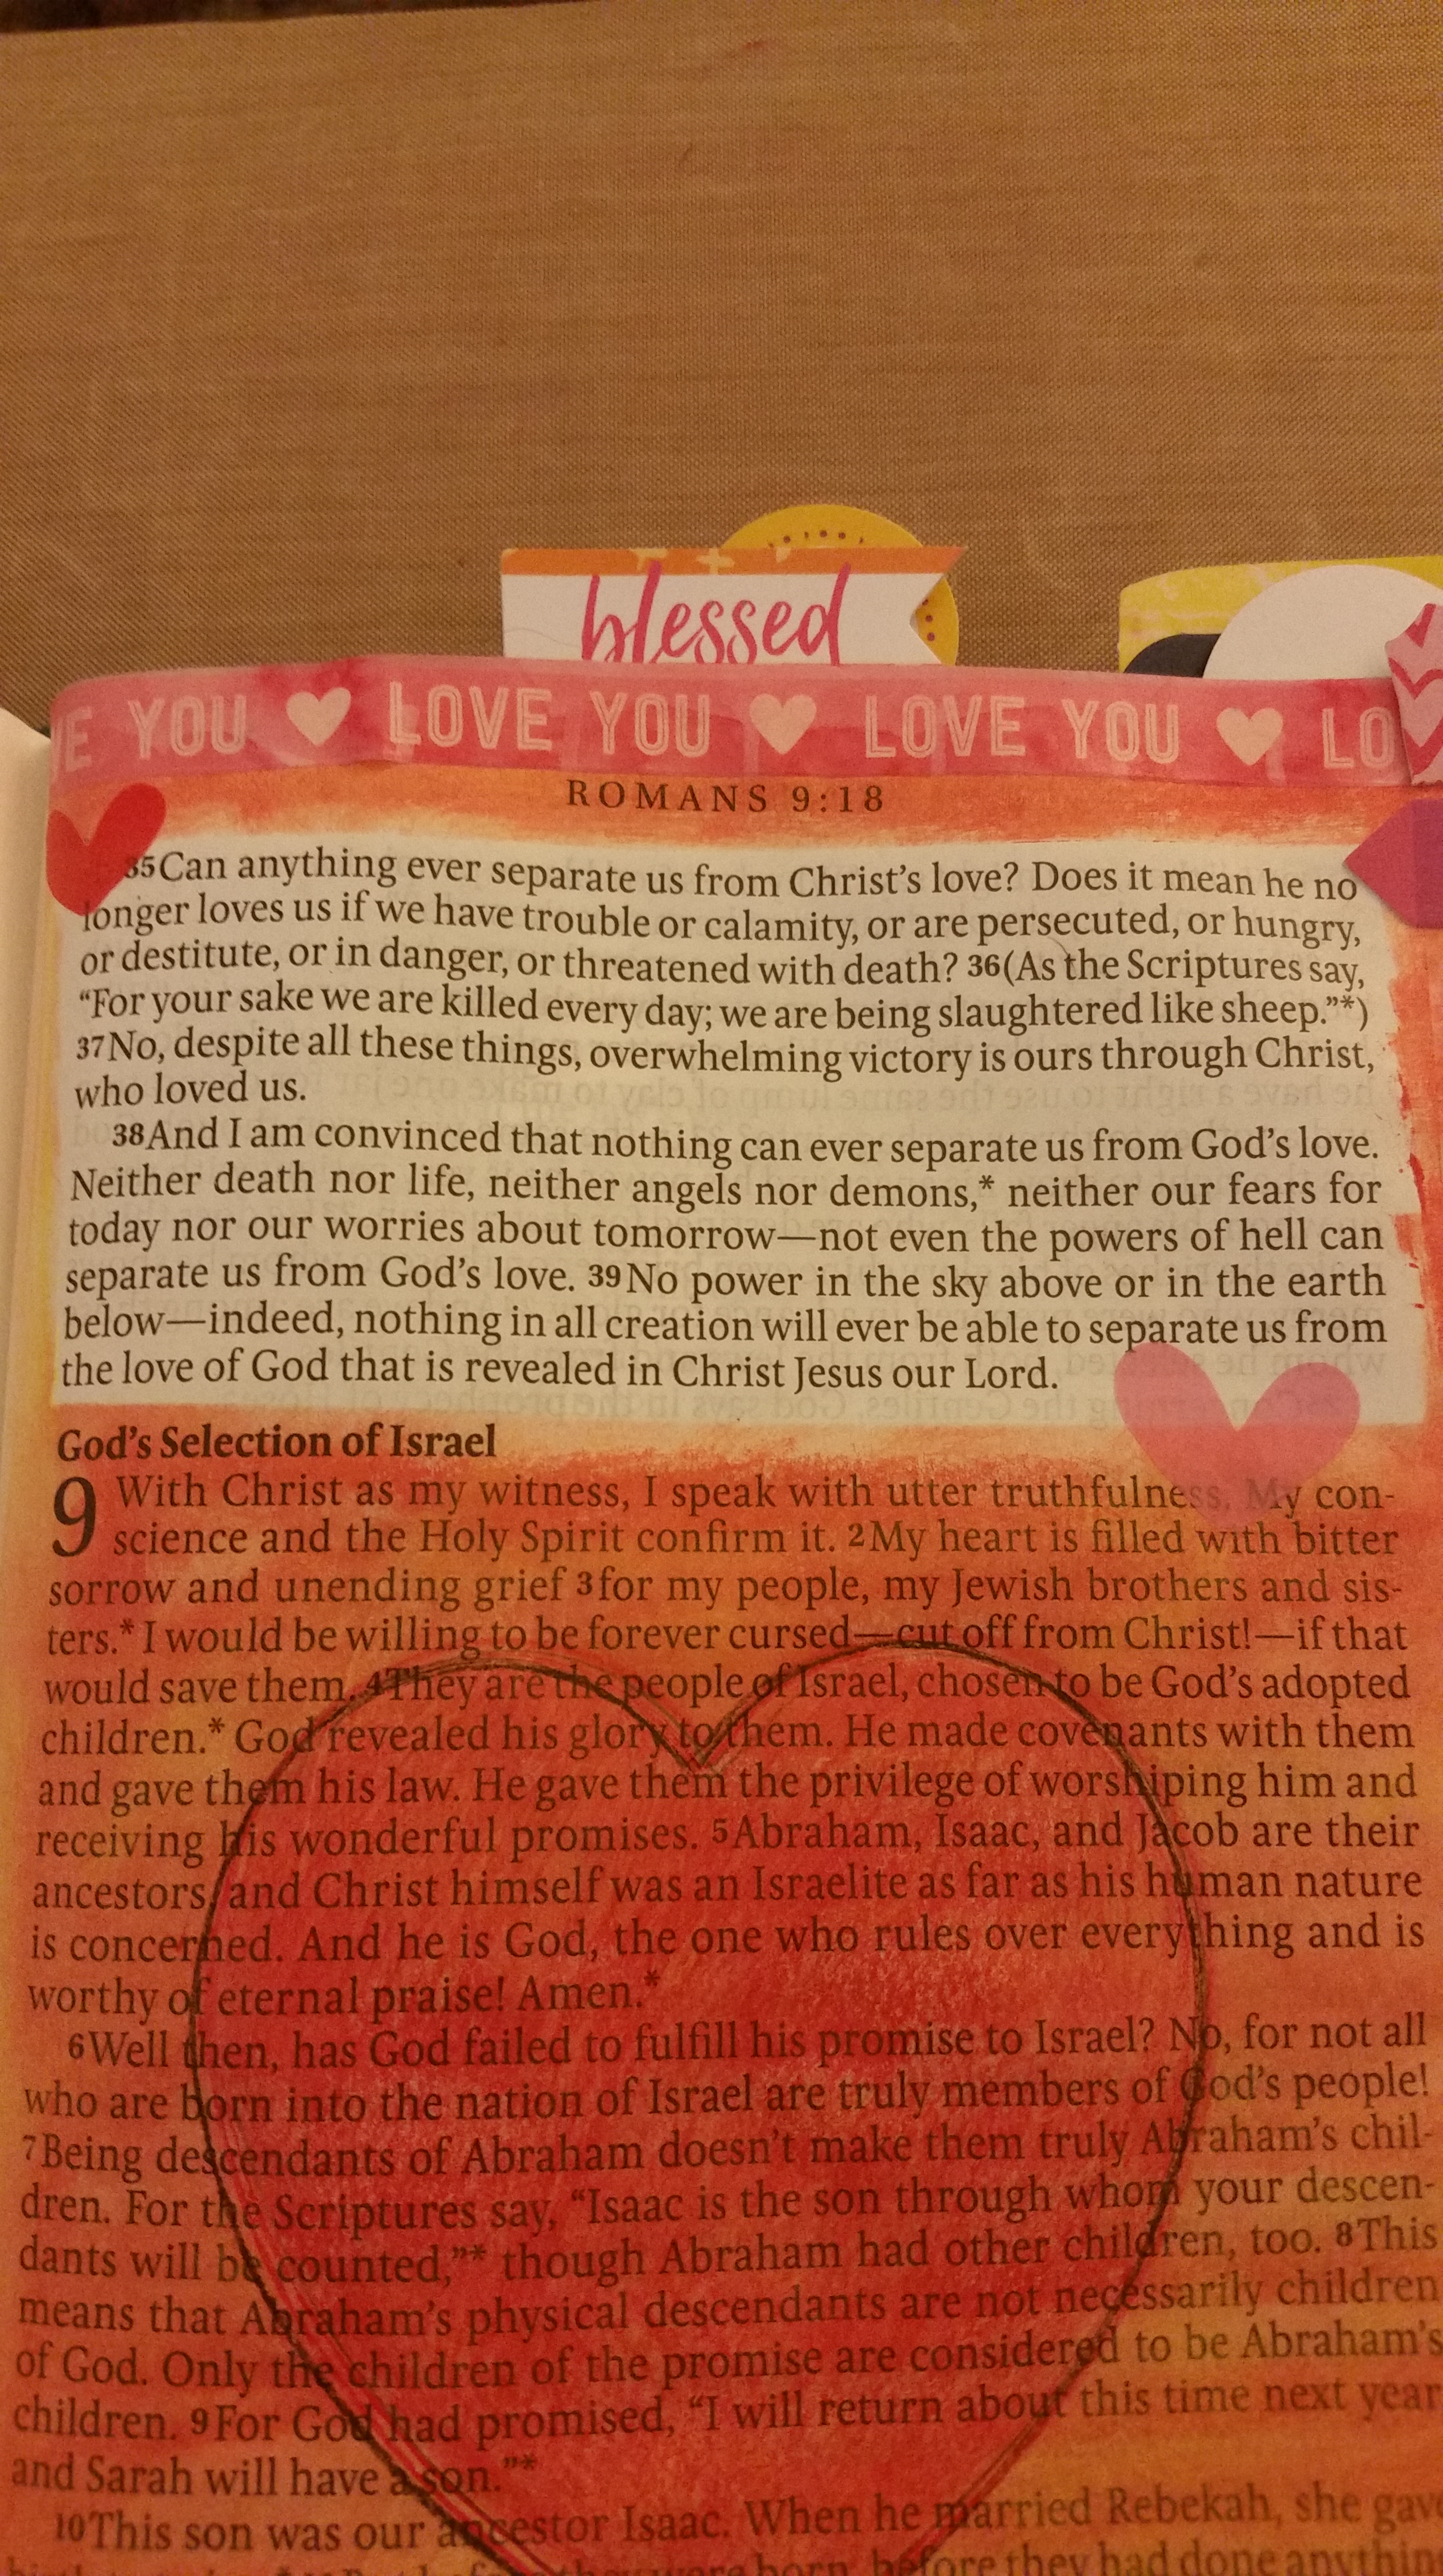 blessed
E YOU LOVE YOU LOVE YOU LO
ROMANS 9:18
35Can anything ever separate us from Christ's love? Does it mean he no
longer loves us if we have trouble or calamity, or are persecuted, or hungry,
or destitute, or in danger, or threatened with death? 36(As the Scriptures say,
“For your sake we are killed every day; we are being slaughtered like sheep.”*)
37No, despite all these things, overwhelming victory is ours through Christ,
who loved us.
38And I am convinced that nothing can ever separate us from God's love.
Neither death nor life, neither angels nor demons,* neither our fears for
today nor our worries about tomorrow—not even the powers of hell can
separate us from God's love. 39No power in the sky above or in the earth
below—indeed, nothing in all creation will ever be able to separate us from
the love of God that is revealed in Christ Jesus our Lord.
God's Selection of Israel
9 With Christ as my witness, I speak with utter truthfulness. My con-
science and the Holy Spirit confirm it. 2My heart is filled with bitter
sorrow and unending grief 3for my people, my Jewish brothers and sis-
ters.* I would be willing to be forever cursed—cut off from Christ!—if that
would save them. 4They are the people of Israel, chosen to be God's adopted
children.* God revealed his glory to them. He made covenants with them
and gave them his law. He gave them the privilege of worshiping him and
receiving his wonderful promises. 5Abraham, Isaac, and Jacob are their
ancestors, and Christ himself was an Israelite as far as his human nature
is concerned. And he is God, the one who rules over everything and is
worthy of eternal praise! Amen.*
6Well then, has God failed to fulfill his promise to Israel? No, for not all
who are born into the nation of Israel are truly members of God's people!
7Being descendants of Abraham doesn't make them truly Abraham's chil-
dren. For the Scriptures say, “Isaac is the son through whom your descen-
dants will be counted,”* though Abraham had other children, too. 8This
means that Abraham's physical descendants are not necessarily children
of God. Only the children of the promise are considered to be Abraham's
children. 9For God had promised, “I will return about this time next year
and Sarah will have a son.”*
10This son was our ancestor Isaac. When he married Rebekah, she gave
they were born, before they had done anything